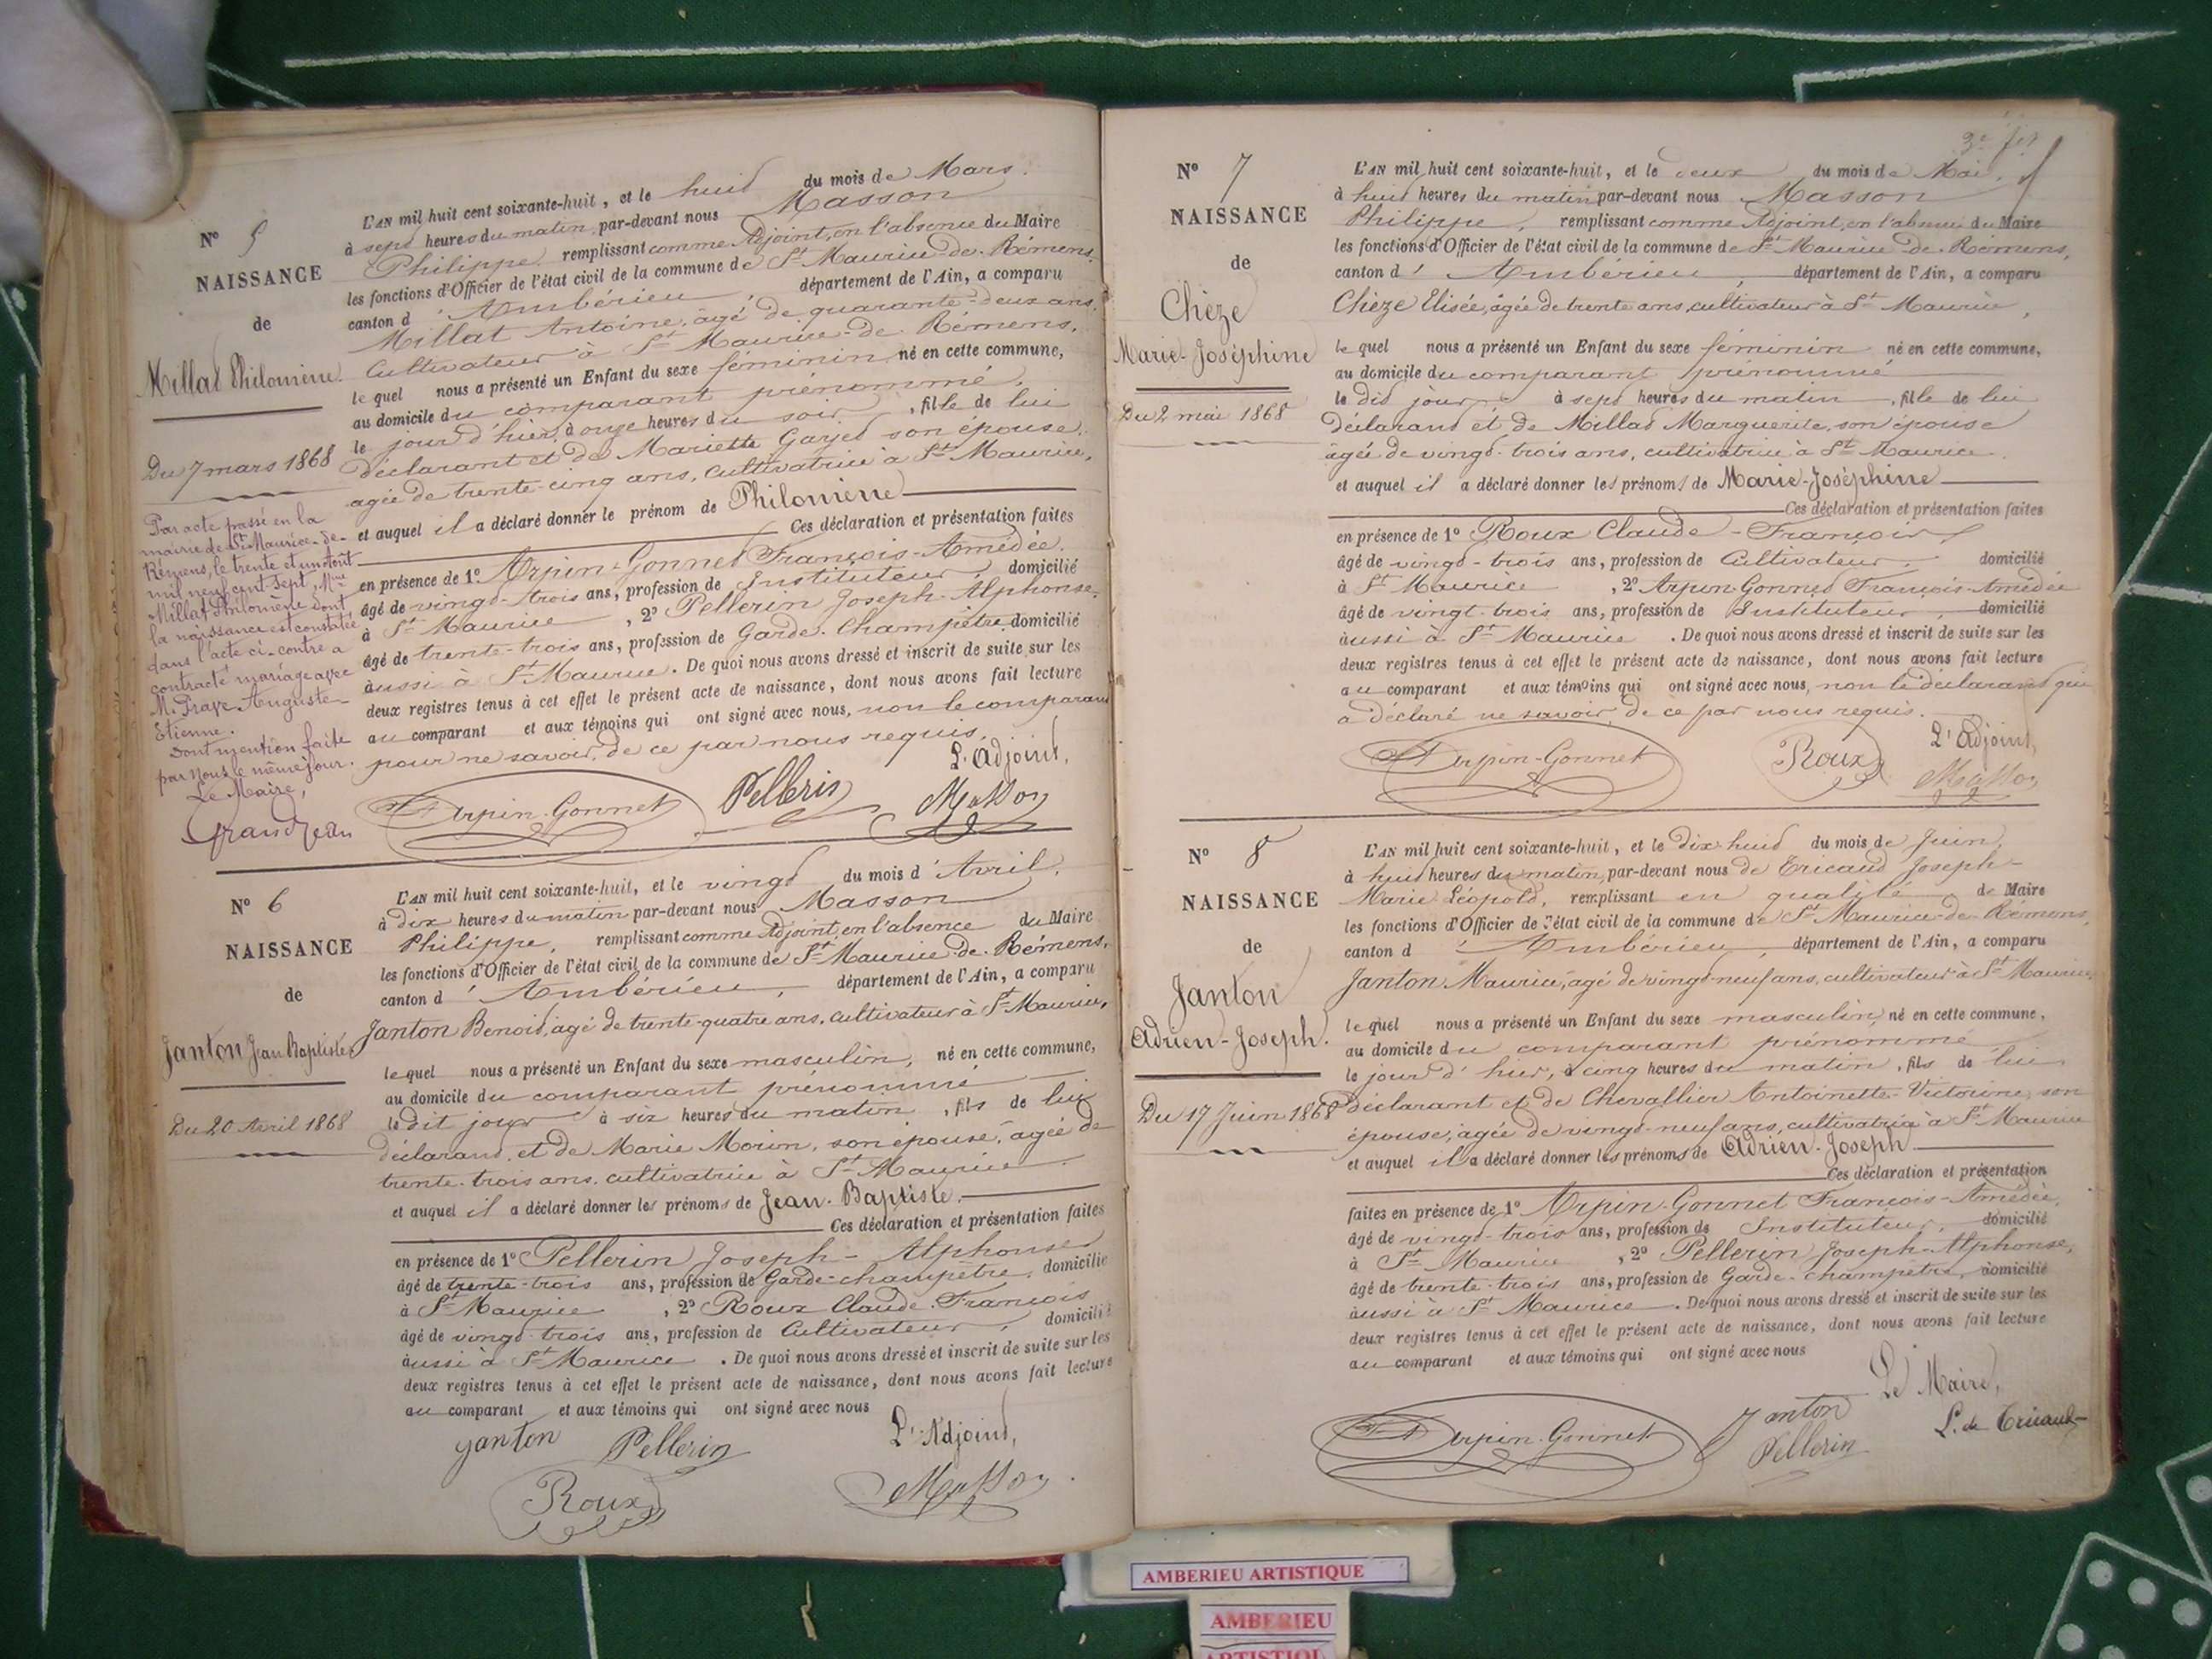 Nº 5
NAISSANCE
de
Millat Philomène.
Du 7 mars 1868
Par acte passé en la
mairie de St Maurice-de-
Rémens, le trente et un août
mil neuf cent sept, Mme
Millat Philomène dont
la naissance est constatée
dans l'acte ci-contre a
contracté mariage avec
M. Auguste-
Etienne.
Dont mention faite
par nous le même jour.
Le Maire,
Grandjean
L'AN mil huit cent soixante-huit, et le huit du mois de Mars.
à sept heures du matin par-devant nous Masson
Philippe, remplissant comme Adjoint, en l'absence du Maire
les fonctions d'Officier de l'état civil de la commune de St Maurice-de-Rémens,
canton d'Ambérieu, département de l'Ain, a comparu
Millat Antoine, âgé de quarante-deux ans,
Cultivateur à St Maurice-de-Rémens,
le quel nous a présenté un Enfant du sexe féminin, né en cette commune,
au domicile du comparant prénommé,
le jour d'hier, à onze heures du soir, fille de lui
déclarant et de Mariette Garjed son épouse,
agée de trente-cinq ans, cultivatrice à St Maurice,
et auquel il a déclaré donner le prénom de Philomène
Ces déclaration et présentation faites
en présence de 1º Arpin-Gonnet François-Amédée,
âgé de vingt-trois ans, profession de Instituteur, domicilié
à St Maurice, 2º Pellerin Joseph-Alphonse,
âgé de trente-trois ans, profession de Garde-Champêtre domicilié
aussi à St Maurice. De quoi nous avons dressé et inscrit de suite sur les
deux registres tenus à cet effet le présent acte de naissance, dont nous avons fait lecture
au comparant et aux témoins qui ont signé avec nous, non le comparant
pour ne savoir, de ce par nous requis.
L'Adjoint,
Arpin-Gonnet Pellerin Masson
Nº 6
NAISSANCE
de
Janton Jean Baptiste
Du 20 Avril 1868
L'AN mil huit cent soixante-huit, et le vingt du mois d'Avril,
à dix heures du matin par-devant nous Masson
Philippe, remplissant comme Adjoint, en l'absence du Maire
les fonctions d'Officier de l'état civil de la commune de St Maurice-de-Rémens,
canton d'Ambérieu, département de l'Ain, a comparu
Janton Benoit, agé de trente-quatre ans, cultivateur à St Maurice,
le quel nous a présenté un Enfant du sexe masculin, né en cette commune,
au domicile du comparant prénommé
le dit jour à six heures du matin, fils de lui
déclarant, et de Marie Morin, son épouse, âgée de
trente-trois ans, cultivatrice à St Maurice.
et auquel il a déclaré donner les prénoms de Jean-Baptiste.
Ces déclaration et présentation faites
en présence de 1º Pellerin Joseph-Alphonse
âgé de trente-trois ans, profession de Garde-champêtre, domicilié
à St Maurice, 2º Roux Claude-François
âgé de vingt-trois ans, profession de Cultivateur, domicilié
aussi à St Maurice. De quoi nous avons dressé et inscrit de suite sur les
deux registres tenus à cet effet le présent acte de naissance, dont nous avons fait lecture
au comparant et aux témoins qui ont signé avec nous
L'Adjoint,
Janton Pellerin
Roux Masson
Nº 7
NAISSANCE
de
Chèze
Marie-Joséphine
Du 2 mai 1868
L'AN mil huit cent soixante-huit, et le deux du mois de Mai,
à huit heures du matin par-devant nous Masson
Philippe, remplissant comme Adjoint, en l'absence du Maire
les fonctions d'Officier de l'état civil de la commune de St Maurice-de-Rémens,
canton d'Ambérieu, département de l'Ain, a comparu
Chèze Elisée, âgée de trente ans, cultivateur à St Maurice,
le quel nous a présenté un Enfant du sexe féminin né en cette commune,
au domicile du comparant prénommé
le dit jour à sept heures du matin, fille de lui
déclarant et de Millat Marguerite, son épouse
âgée de vingt-trois ans, cultivatrice à St Maurice.
et auquel il a déclaré donner les prénoms de Marie-Joséphine
Ces déclaration et présentation faites
en présence de 1º Roux Claude-François,
âgé de vingt-trois ans, profession de Cultivateur, domicilié
à St Maurice, 2º Arpin-Gonnet François-Amédée
âgé de vingt-trois ans, profession de Instituteur, domicilié
aussi à St Maurice. De quoi nous avons dressé et inscrit de suite sur les
deux registres tenus à cet effet le présent acte de naissance, dont nous avons fait lecture
au comparant et aux témoins qui ont signé avec nous, non le déclarant qui
a déclaré ne savoir, de ce par nous requis.
L'Adjoint,
Arpin-Gonnet Roux Masson
Nº 8
NAISSANCE
de
Janton
Adrien-Joseph.
Du 17 Juin 1868
L'AN mil huit cent soixante-huit, et le Dix-huit du mois de Juin,
à huit heures du matin, par-devant nous de Tricaud Joseph-
Marie Léopold, remplissant en qualité de Maire
les fonctions d'Officier de l'état civil de la commune de St Maurice-de-Rémens,
canton d'Ambérieu, département de l'Ain, a comparu
Janton Maurice, agé de vingt-neuf ans, cultivateur à St Maurice,
le quel nous a présenté un Enfant du sexe masculin, né en cette commune,
au domicile du comparant prénommé
le jour d'hier, à cinq heures du matin, fils de lui
déclarant et de Chevallier Antoinette-Victorine, son
épouse, agée de vingt-neuf ans, cultivatrice à St Maurice
et auquel il a déclaré donner les prénoms de Adrien-Joseph
Ces déclaration et présentation
faites en présence de 1º Arpin-Gonnet François-Amédée,
âgé de vingt-trois ans, profession de Instituteur, domicilié
à St Maurice, 2º Pellerin Joseph-Alphonse,
âgé de trente-trois ans, profession de Garde-champêtre, domicilié
aussi à St Maurice. De quoi nous avons dressé et inscrit de suite sur les
deux registres tenus à cet effet le présent acte de naissance, dont nous avons fait lecture
au comparant et aux témoins qui ont signé avec nous
Le Maire,
Arpin-Gonnet Janton L. de Tricaud
Pellerin
AMBERIEU ARTISTIQUE
AMBERIEU
ARTISTIQUE